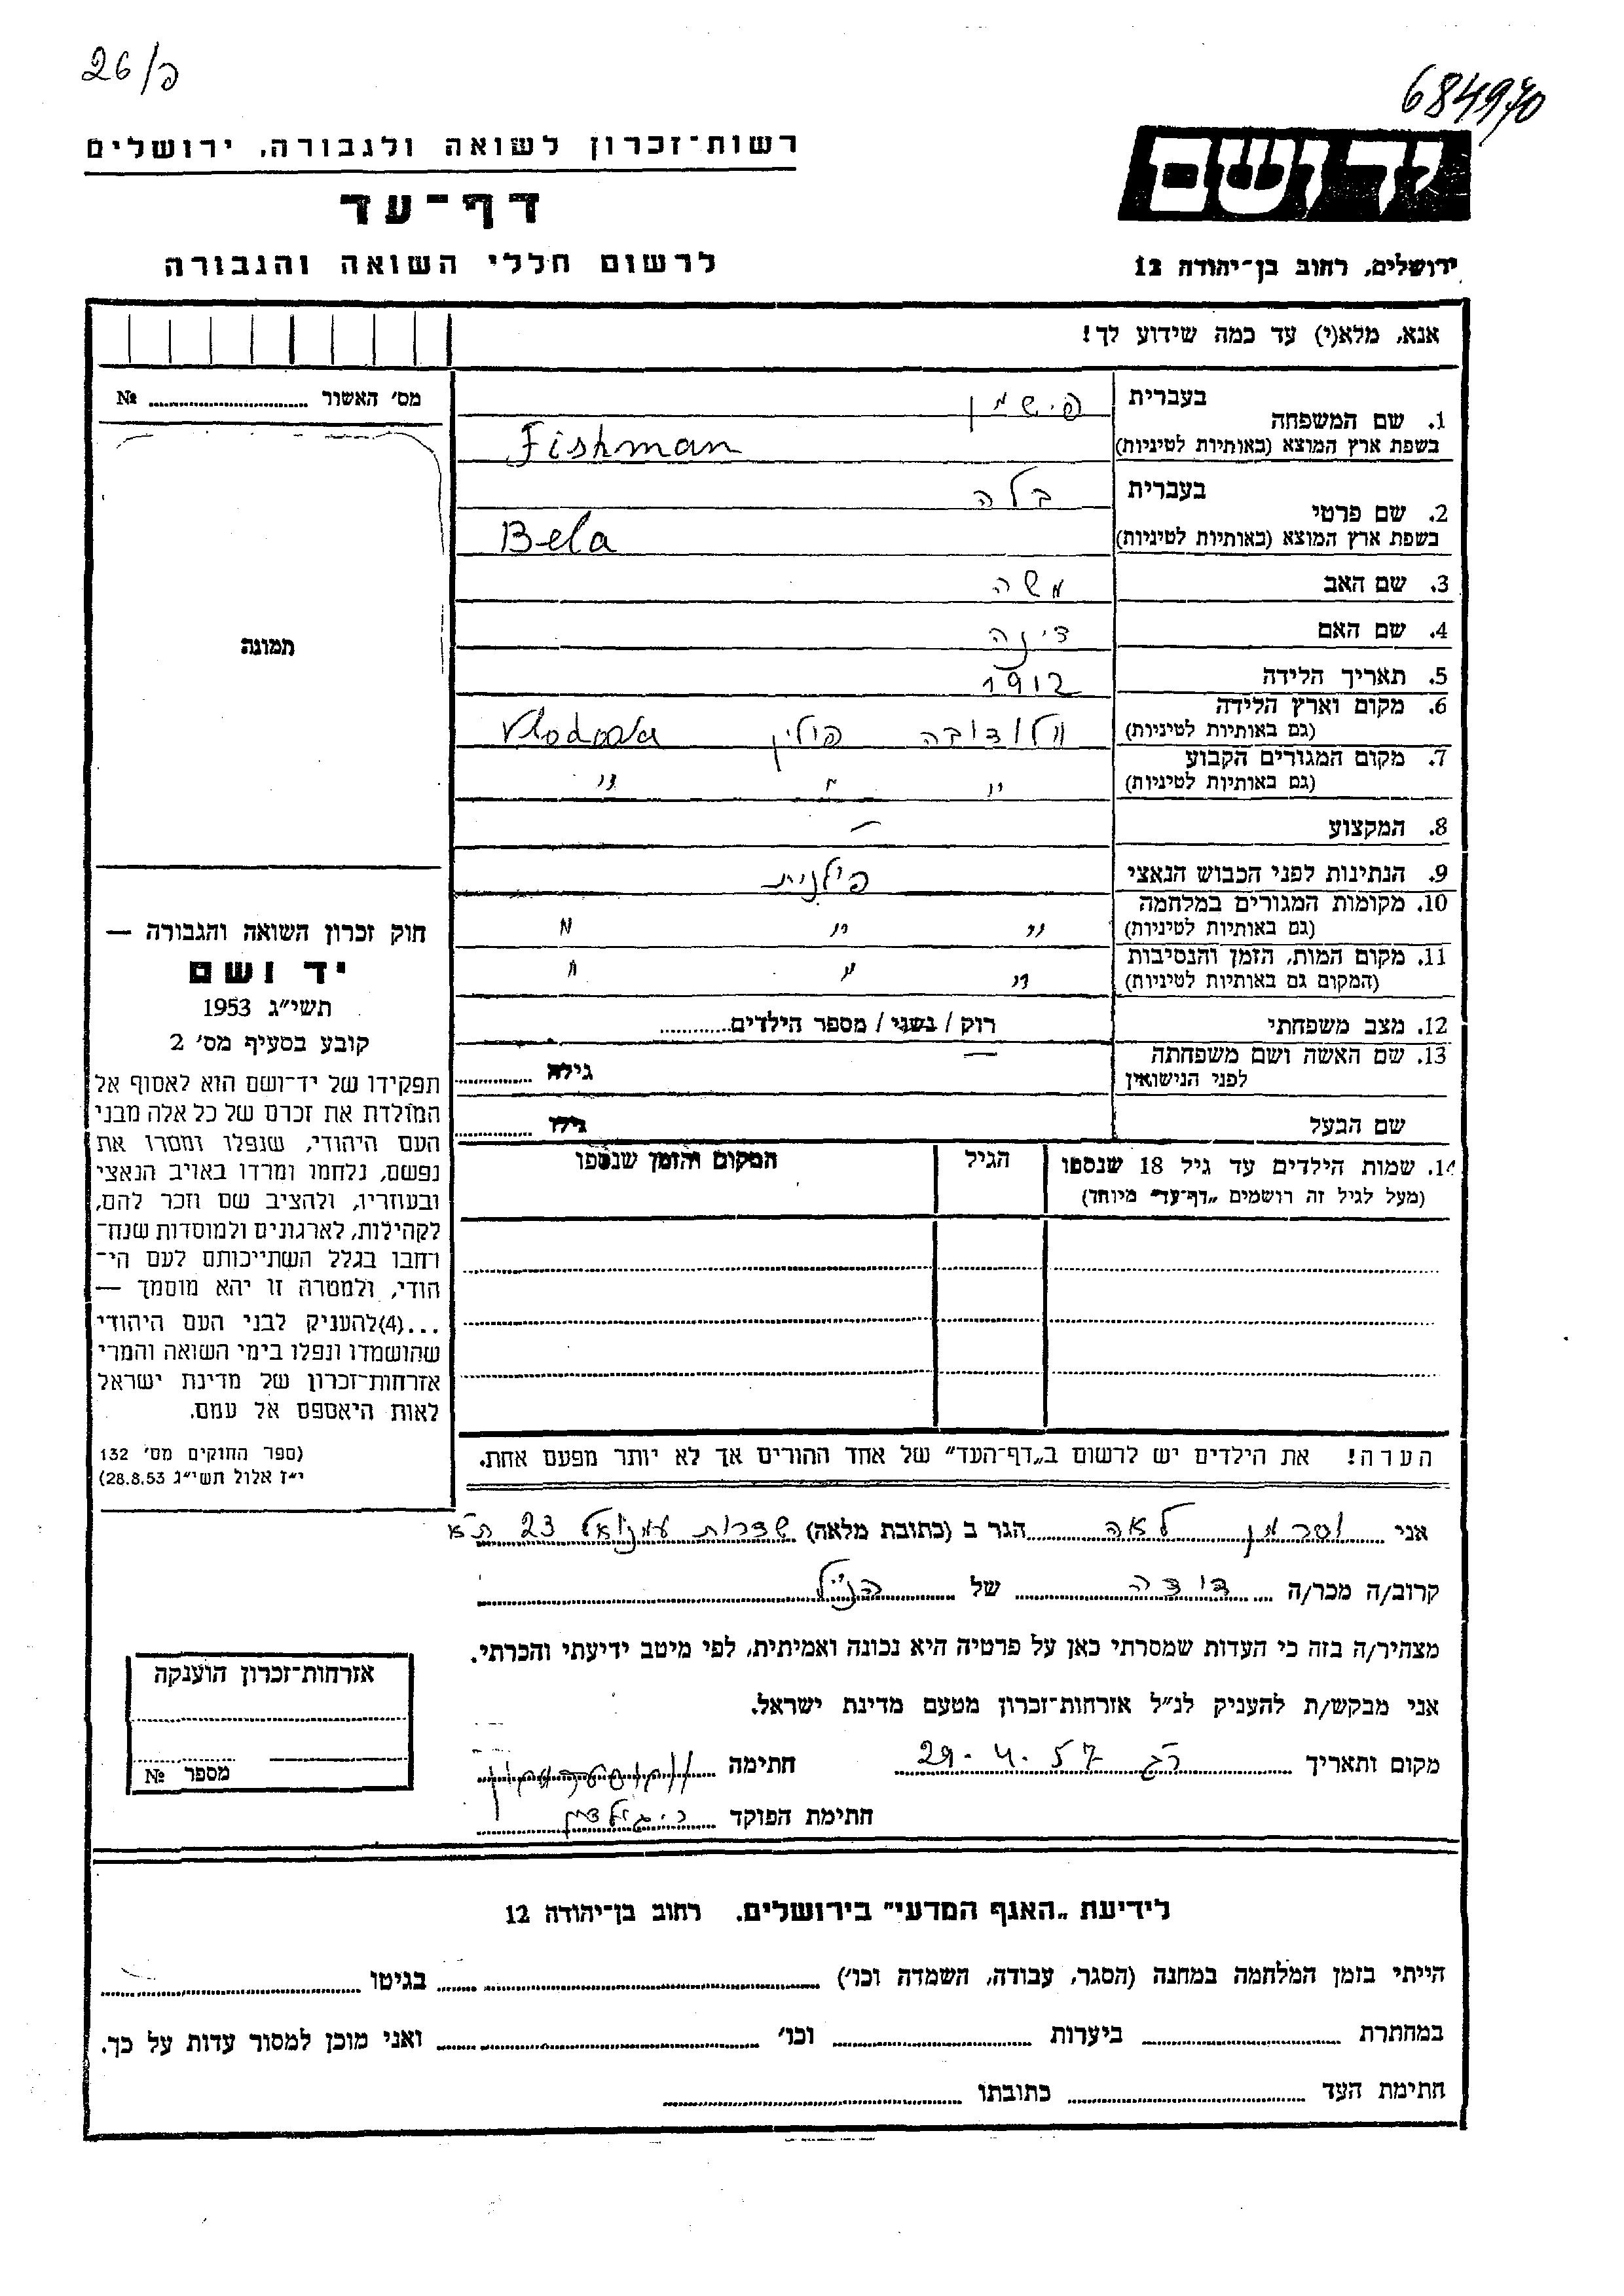 26/פ
684970
רשות־זכרון לשואה ולגבורה, ירושלים
יד ושם
דף־עד
לרשום חללי השואה והגבורה
ירושלים, רחוב בן־יהודה 12
אנא, מלא(י) עד כמה שידוע לך!
מס׳ האשור № 
1. שם המשפחה
בעברית פישמן
בשפת ארץ המוצא (באותיות לטיניות) Fishman
2. שם פרטי
בעברית בלה
בשפת ארץ המוצא (באותיות לטיניות) Bela
3. שם האב משה
4. שם האם דינה
תמונה
5. תאריך הלידה 1912
6. מקום וארץ הלידה
(גם באותיות לטיניות) ולודובה פולין Vlodova
7. מקום המגורים הקבוע
(גם באותיות לטיניות) " " "
8. המקצוע —
9. הנתינות לפני הכבוש הנאצי פולנית
10. מקומות המגורים במלחמה
(גם באותיות לטיניות) " " "
11. מקום המות, הזמן והנסיבות
(המקום גם באותיות לטיניות) " " "
12. מצב משפחתי רוק / נשוי / מספר הילדים
13. שם האשה ושם משפחתה
לפני הנישואין — גילה
שם הבעל גילו
14. שמות הילדים עד גיל 18 שנספו
(מעל לגיל זה רושמים „דף־עד" מיוחד)
הגיל
המקום והזמן שנספו
חוק זכרון השואה והגבורה —
יד ושם
תשי״ג 1953
קובע בסעיף מס׳ 2
תפקידו של יד־ושם הוא לאסוף אל
המולדת את זכרם של כל אלה מבני
העם היהודי, שנפלו ומסרו את
נפשם, נלחמו ומרדו באויב הנאצי
ובעוזריו, ולהציב שם וזכר להם,
לקהילות, לארגונים ולמוסדות שנח־
רחבו בגלל השתייכותם לעם הי־
הודי, ולמטרה זו יהא מוסמך —
...(4)להעניק לבני העם היהודי
שהושמדו ונפלו בימי השואה והמרי
אזרחות־זכרון של מדינת ישראל
לאות היאספם אל עמם.
(ספר החוקים מס׳ 132
י״ז אלול תשי״ג 28.8.53)
הערה! את הילדים יש לרשום ב„דף־העד" של אחד ההורים אך לא יותר מפעם אחת.
אני וסרמן לאה הגר ב (כתובת מלאה) שדרות עמנואל 23 ת״א
קרוב/ה מכר/ה דודה של הנ״ל
מצהיר/ה בזה כי העדות שמסרתי כאן על פרטיה היא נכונה ואמיתית, לפי מיטב ידיעתי והכרתי.
אני מבקש/ת להעניק לנ״ל אזרחות־זכרון מטעם מדינת ישראל.
מקום ותאריך רג 29.4.57 חתימה
חתימת הפוקד
אזרחות־זכרון הוענקה
מספר №
לידיעת „האגף המדעי" בירושלים. רחוב בן־יהודה 12
הייתי בזמן המלחמה במחנה (הסגר, עבודה, השמדה וכו׳) בגיטו
במחתרת ביערות וכו׳ ואני מוכן למסור עדות על כך.
חתימת העד כתובתו